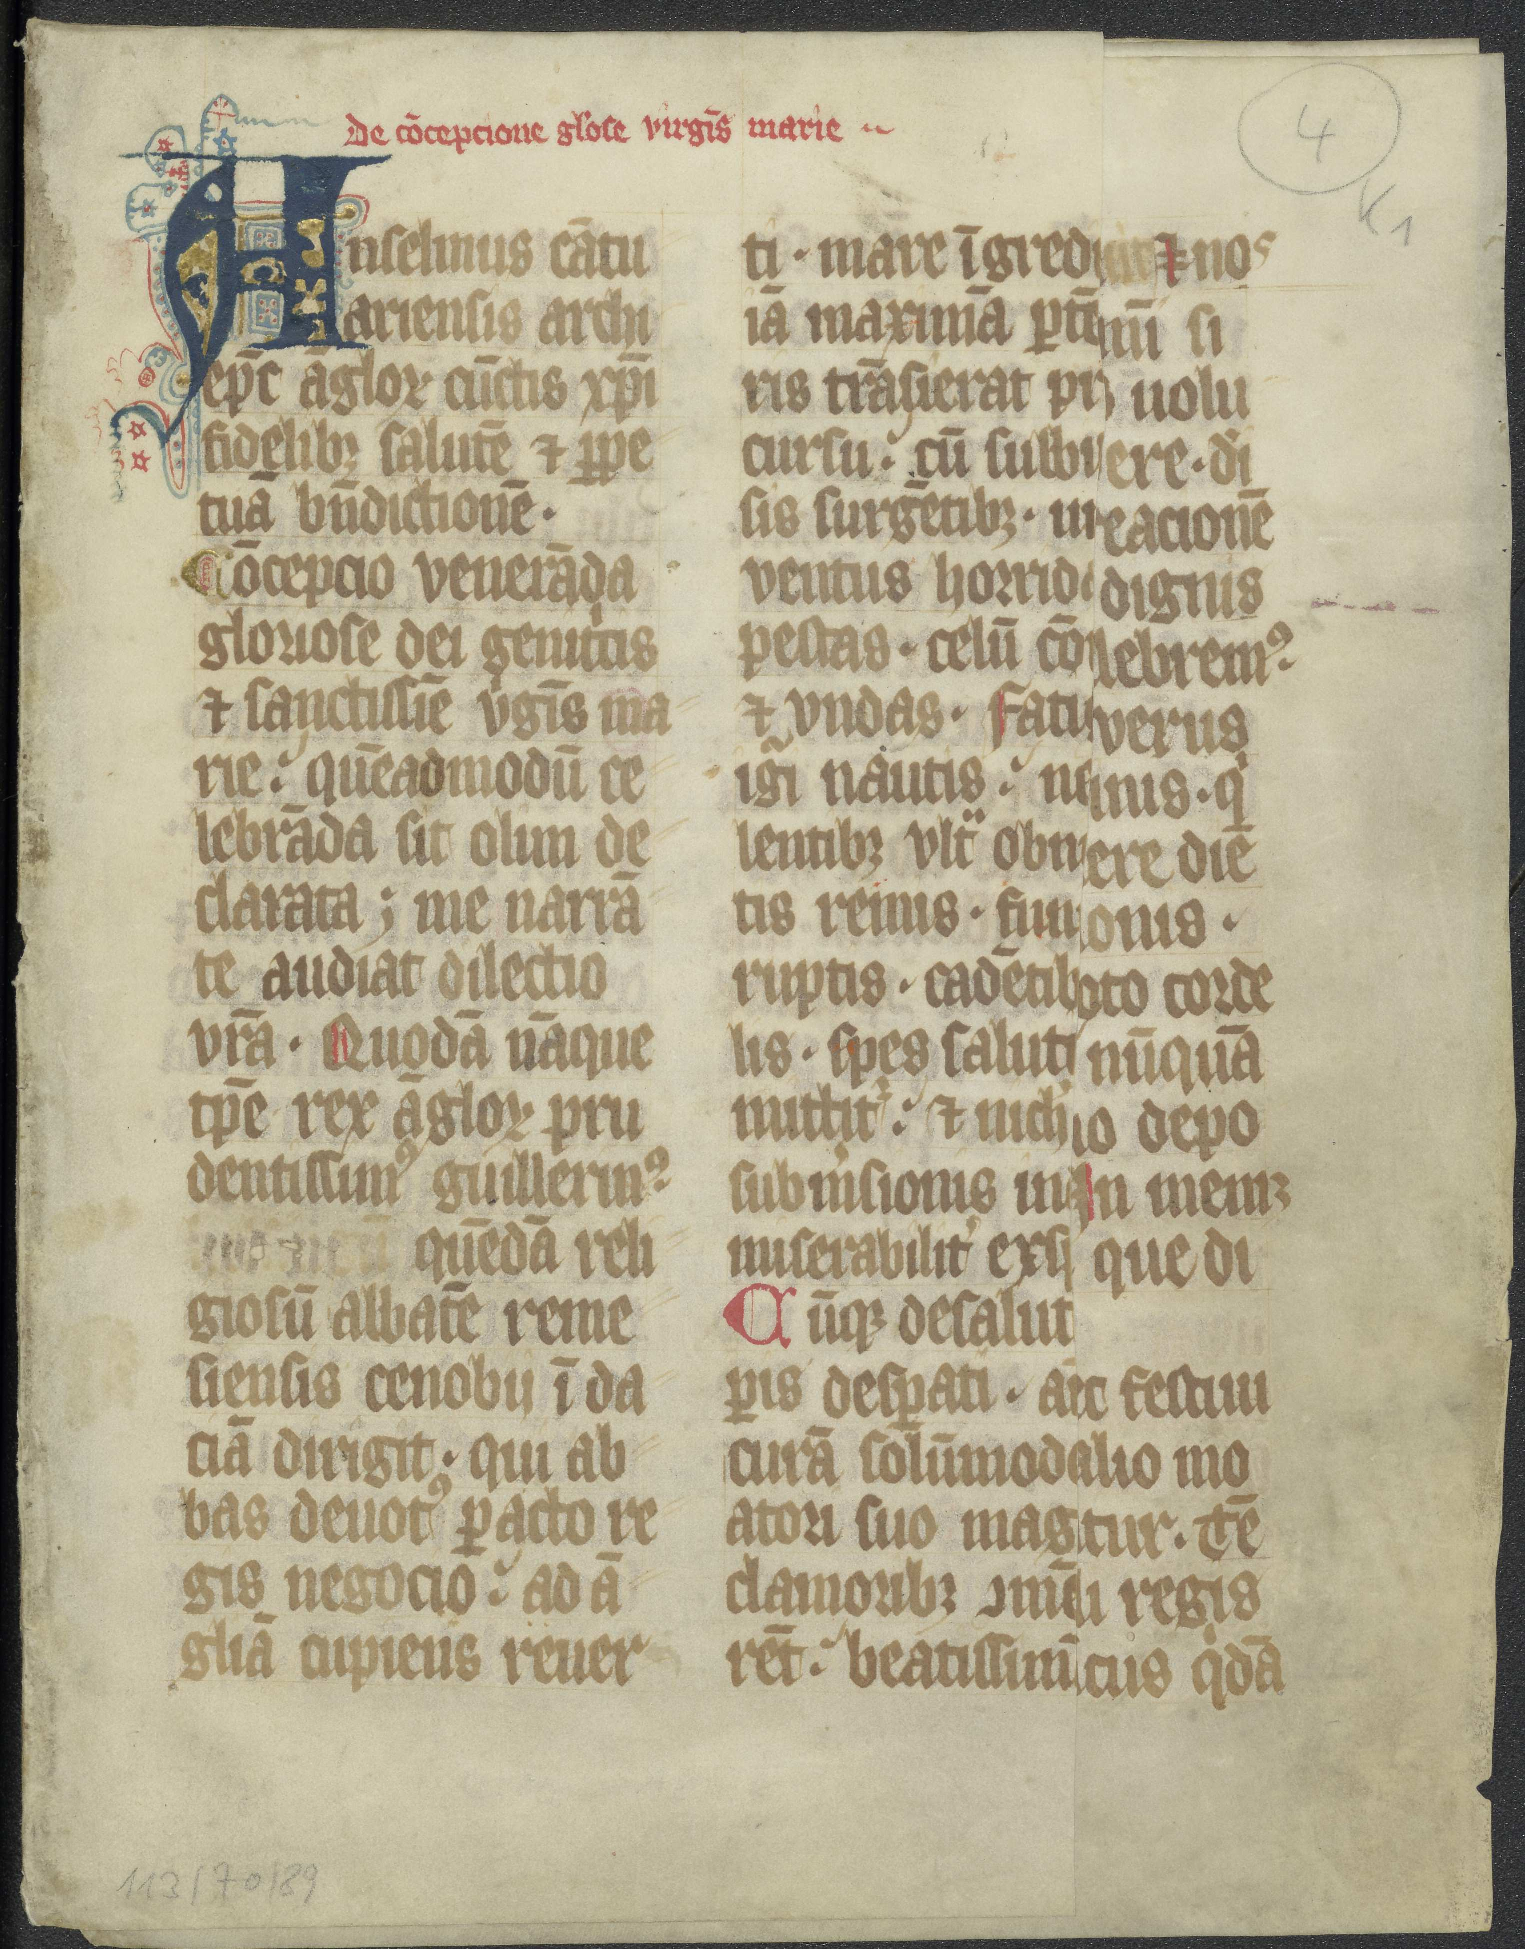 De cōcepcione gl'ose virgīs marie
4
K 1
Anselmus cātu
ariensis archi
ep̄c āgloꝝ cūctis xp̄i
fidelibꝫ salutē ⁊ ꝑpe
tuā bn̄dictionē·
Cōcepcio venerāda
gloriose dei genitͥcis
⁊ sanctissīe v̓gīs ma
rie: quēadmodū ce
lebrāda sit olim de
clarata; me narrā
te audiat dilectio
vr̄a· Quodā nāque
tp̄e rex āgloꝝ pru
dentissimꝰ guillermꝰ
quēdā reli
giosū abbatē reme
siensis cenobij ī da
ciā dirigit· qui ab
bas deuotꝰ ꝑacto re
gis negocio: ad ā
gliā cupiens reuer
ti· mare īgred
iā maximā ꝑtē
ris trāsierat pr
cursu: cū subbi
sis surgētibꝫ·
ventus horrid
pestas· celū cō
⁊ vndas· Fati
igͥ nautis: ne
lentibꝫ vlt̓ obni
tis remis· funi
ruptis· cadētib
lis· spes saluti
mittit᷑: ⁊ nich
submͥsionis in
miserabilit̓ exsp
Cūqꝫ de salut
ꝑis desꝑati·
curā solūmodo
atori suo mag
clamoribꝫ
rēt: beatissim
⁊ nos
nū si
uolu
ere· di
eacionē
dignis
lebremꝰ·
verus
nus· qͥ
ere diē
onis·
oto corde
nūquā
io depo
In memꝫ
que di
c festiui
alio mo
tur· Tē
i regis
cus qͥdā
113/70/89